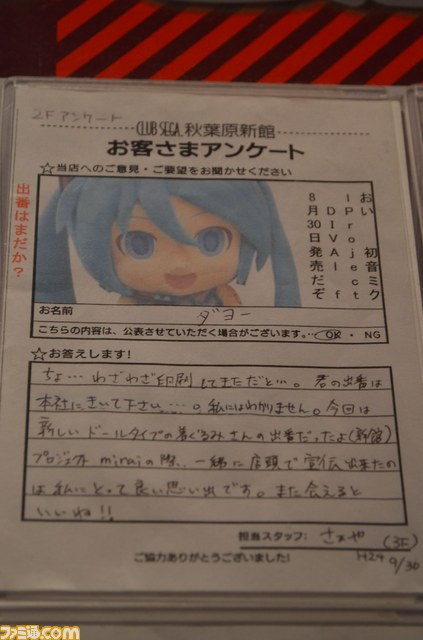 2Fアンケート
CLUB SEGA 秋葉原新館
お客さまアンケート
☆当店へのご意見・ご要望をお聞かせください
出番はまだか?
おい 初音ミク
Project
DIVA f
8月30日発売だぞ
お名前
ダヨー
こちらの内容は、公表させていただく場合がございます。…OK・NG
☆お答えします!
ちょ…わざわざ印刷してきただと…。君の出番は
本社にきいて下さい……。私にはわかりません。今回は
新しいドールタイプの着ぐるみさんの出番だったよ(新館)
プロジェクト miraiの際、一緒に店頭で宣伝出来たの
は私にとって良い思い出です。また会えると
いいね!!
担当スタッフ: さぁや (3F)
ご協力ありがとうございました!
H24 9/30
ファミ通.com